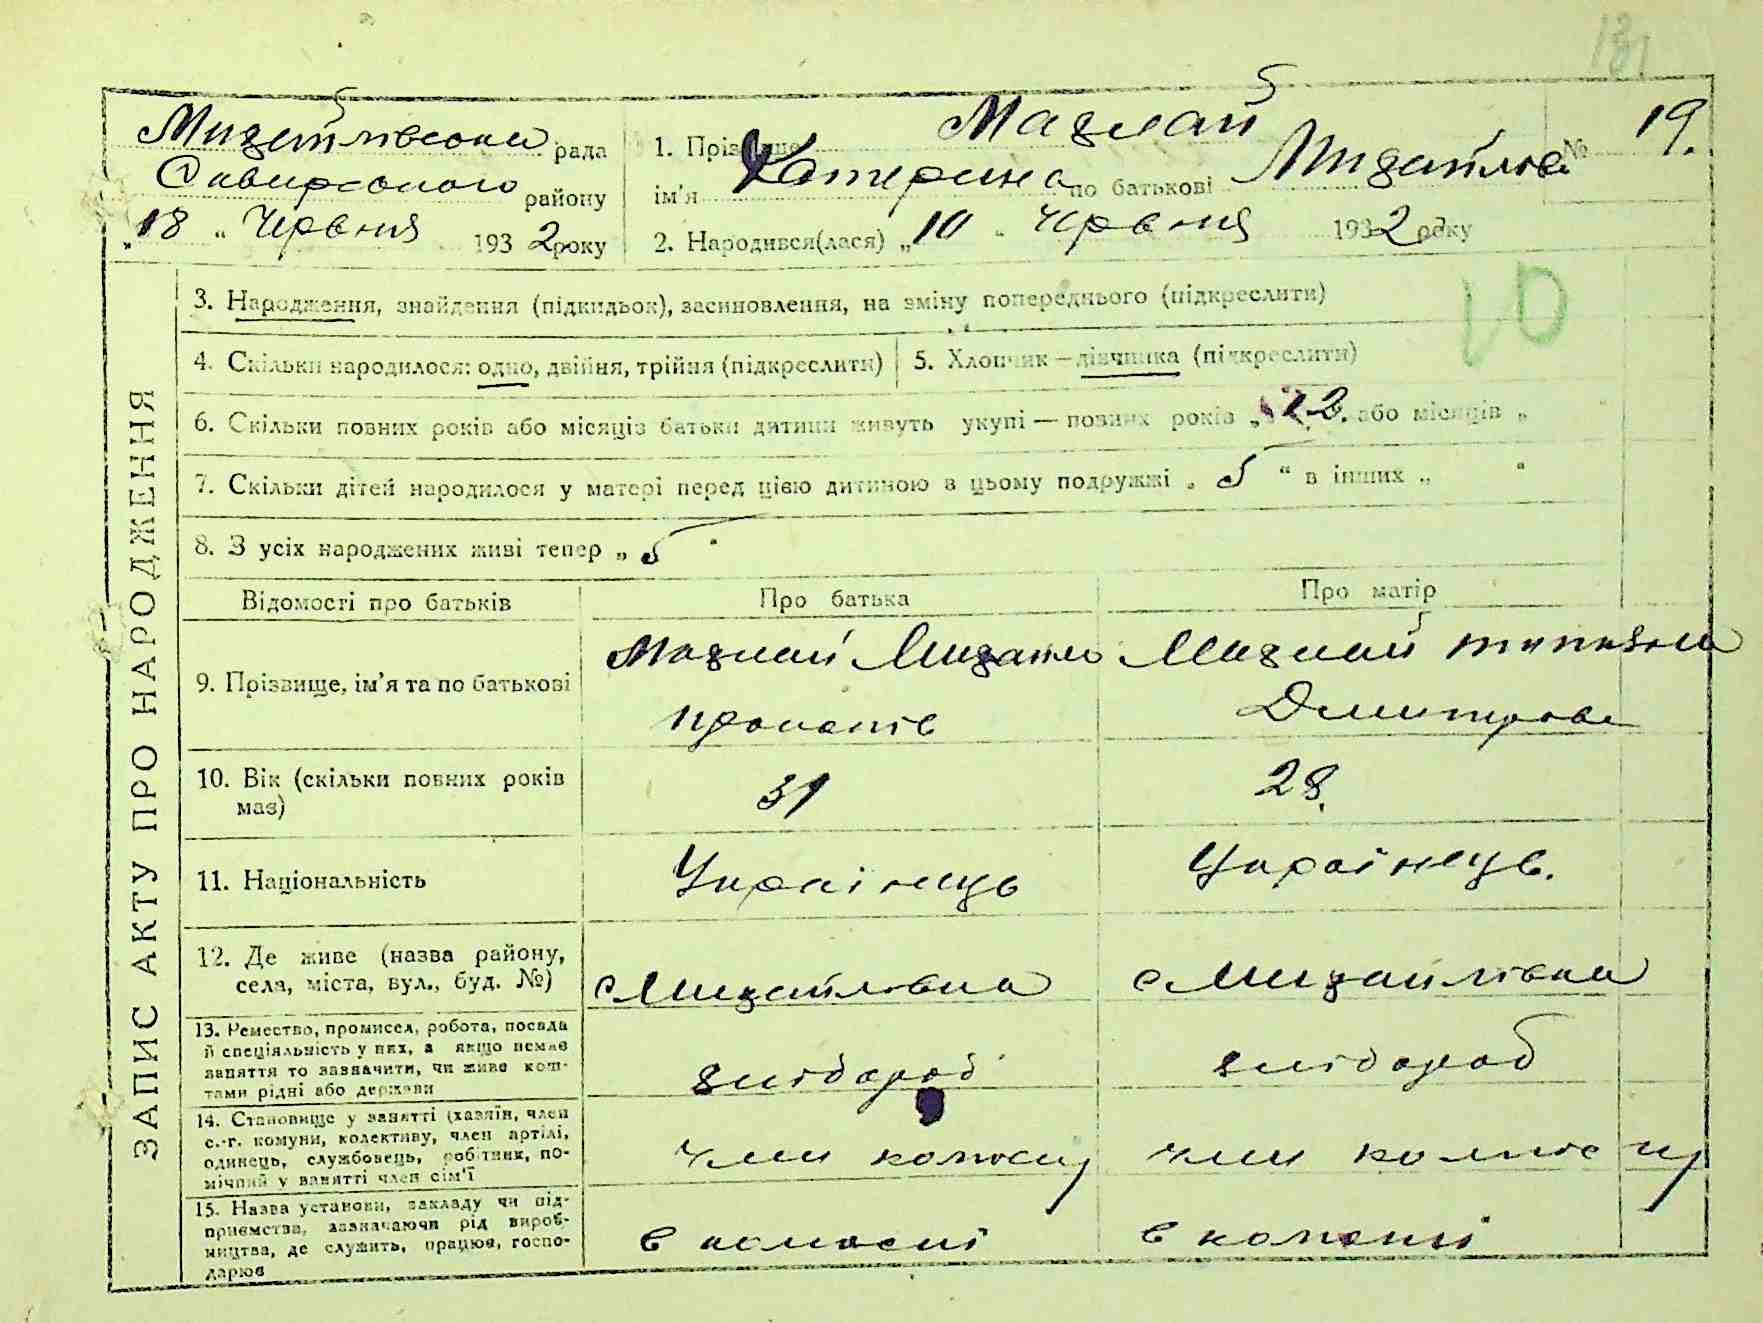 131
Михайлівська рада
Сквирського району
„18“ Червня 1932 року
1. Прізвище Мазлай № 19.
ім'я Катерина по батькові Михайлів
2. Народився(лася) „10“ Червня 1932 року
ЗАПИС АКТУ ПРО НАРОДЖЕННЯ
3. Народження, знайдення (підкидьок), засиновлення, на зміну попереднього (підкреслити)
10
4. Скільки народилося: одно, двійня, трійня (підкреслити)
5. Хлопчик — дівчинка (підкреслити)
6. Скільки повних років або місяців батьки дитини живуть укупі — повних років „12. або місяців „
7. Скільки дітей народилося у матері перед цією дитиною в цьому подружжі „ 5 “ в інших „ “
8. З усіх народжених живі тепер „ 5 “
Відомості про батьків
Про батька
Про матір
9. Прізвище, ім'я та по батькові
Мазлай Михайло
Прокопів
Мазлай
Дмитрова
10. Вік (скільки повних років
має)
31
28.
11. Національність
Українець
Українець.
12. Де живе (назва району,
села, міста, вул., буд. №)
с Михайлівка
с Михайлівка
13. Ремество, промисел, робота, посада
й спеціяльність у них, а якщо немає
заняття то зазначити, чи живе кош-
тами рідні або держави
хлібороб
хлібороб
14. Становище у занятті (хазяїн, член
с.-г. комуни, колективу, член артілі,
одинець, службовець, робітник, по-
мічний у занятті член сім'ї
член колгоспу
член колгоспу
15. Назва установи, закладу чи під-
приємства, зазначаючи рід вироб-
ництва, де служить, працює, госпо-
дарює
в колгоспі
в колгоспі